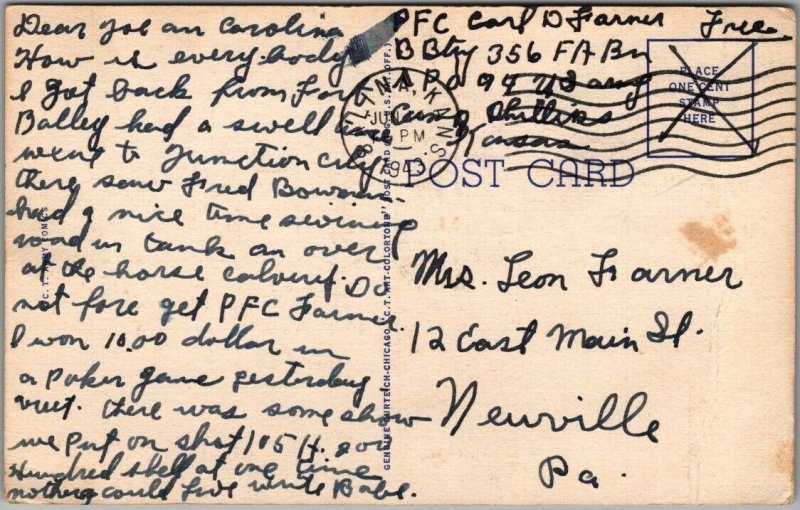 Dear Joe an Carolina
How is everybody
I got back from Fort
Balley had a swell time
wene to Junction City
there saw Fred Bowman
had a nice time
road in tank an over
at the horse calvery. Do
not fore get PFC Farmer
I won 10.00 dollar in
a poker game yesterday
there was some show
we put on shot 105 H.
Hundred shell at one time
nothing could live write Babe.
PFC Carl D Farner Free
B Btry 356 FA Bn
APO 94
Camp Phillips
Kansas
SALINA, KANS.
JUN
PM
194
PLACE
ONE CENT
STAMP
HERE
POST CARD
Mrs. Leon Farner
12 East Main St.
Newville
Pa.
C.T. ARMY COMICS
GENUINE CURTEICH-CHICAGO "C.T. ART-COLORTONE" POST CARD